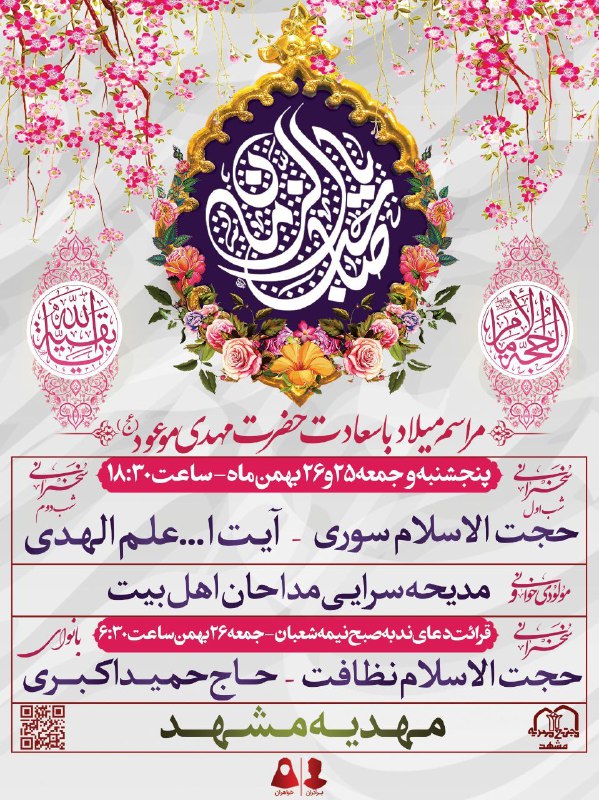 یا صاحب الزمان
الحجة ما الأمر
بقیة الله
مراسم میلاد با سعادت حضرت مهدی موعود (عج)
پنجشنبه و جمعه ۲۵ و ۲۶ بهمن ماه - ساعت ۱۸:۳۰
سخنرانی شب اول
حجت الاسلام سوری - آیت ا... علم الهدی
سخنرانی شب دوم
مولودی خوانی و
مدیحه سرایی مداحان اهل بیت
قرائت دعای ندبه صبح نیمه شعبان - جمعه ۲۶ بهمن ساعت ۶:۳۰
سخنرانی
حجت الاسلام نظافت - حاج حمید اکبری
بانوای
مهدیه مشهد
مشهد
برادران
خواهران